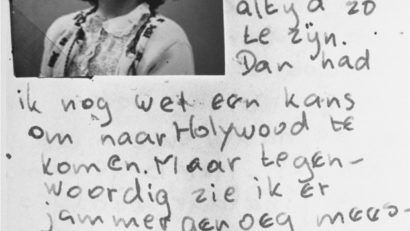 altyd zo
te zijn.
Dan had
ik nog wel een kans
om naar Holywood te
komen. Maar tegen-
woordig zie ik er
jammer genoeg mees-